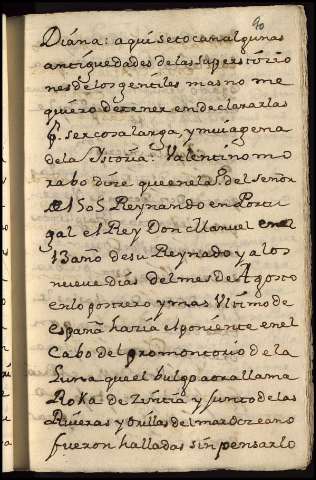 90
Diana: aqui se tocan algunas
antiguedades de las supersticio
nes de los gentiles mas no me
quiero detener en declararlas
p.r ser cosa larga, y mui agena
de la Istoria. Valentino mo
rabo dize que en el a.o del señor
1505 Reynando en Portu
gal el Rey Don Manuel en el
13 año de su Reynado y a los
nueve dias del mes de Agosto
en lo postrero y mas Ultimo de
españa hazia el poniente en el
Cabo del promontorio de la
Luna que el bulgo aora llama
Roka de Zintia y junto de las
Riveras y Orillas del mar Oceano
fueron halladas sin pensarlo